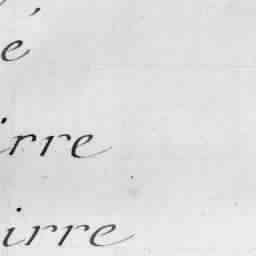 é
irre
irre